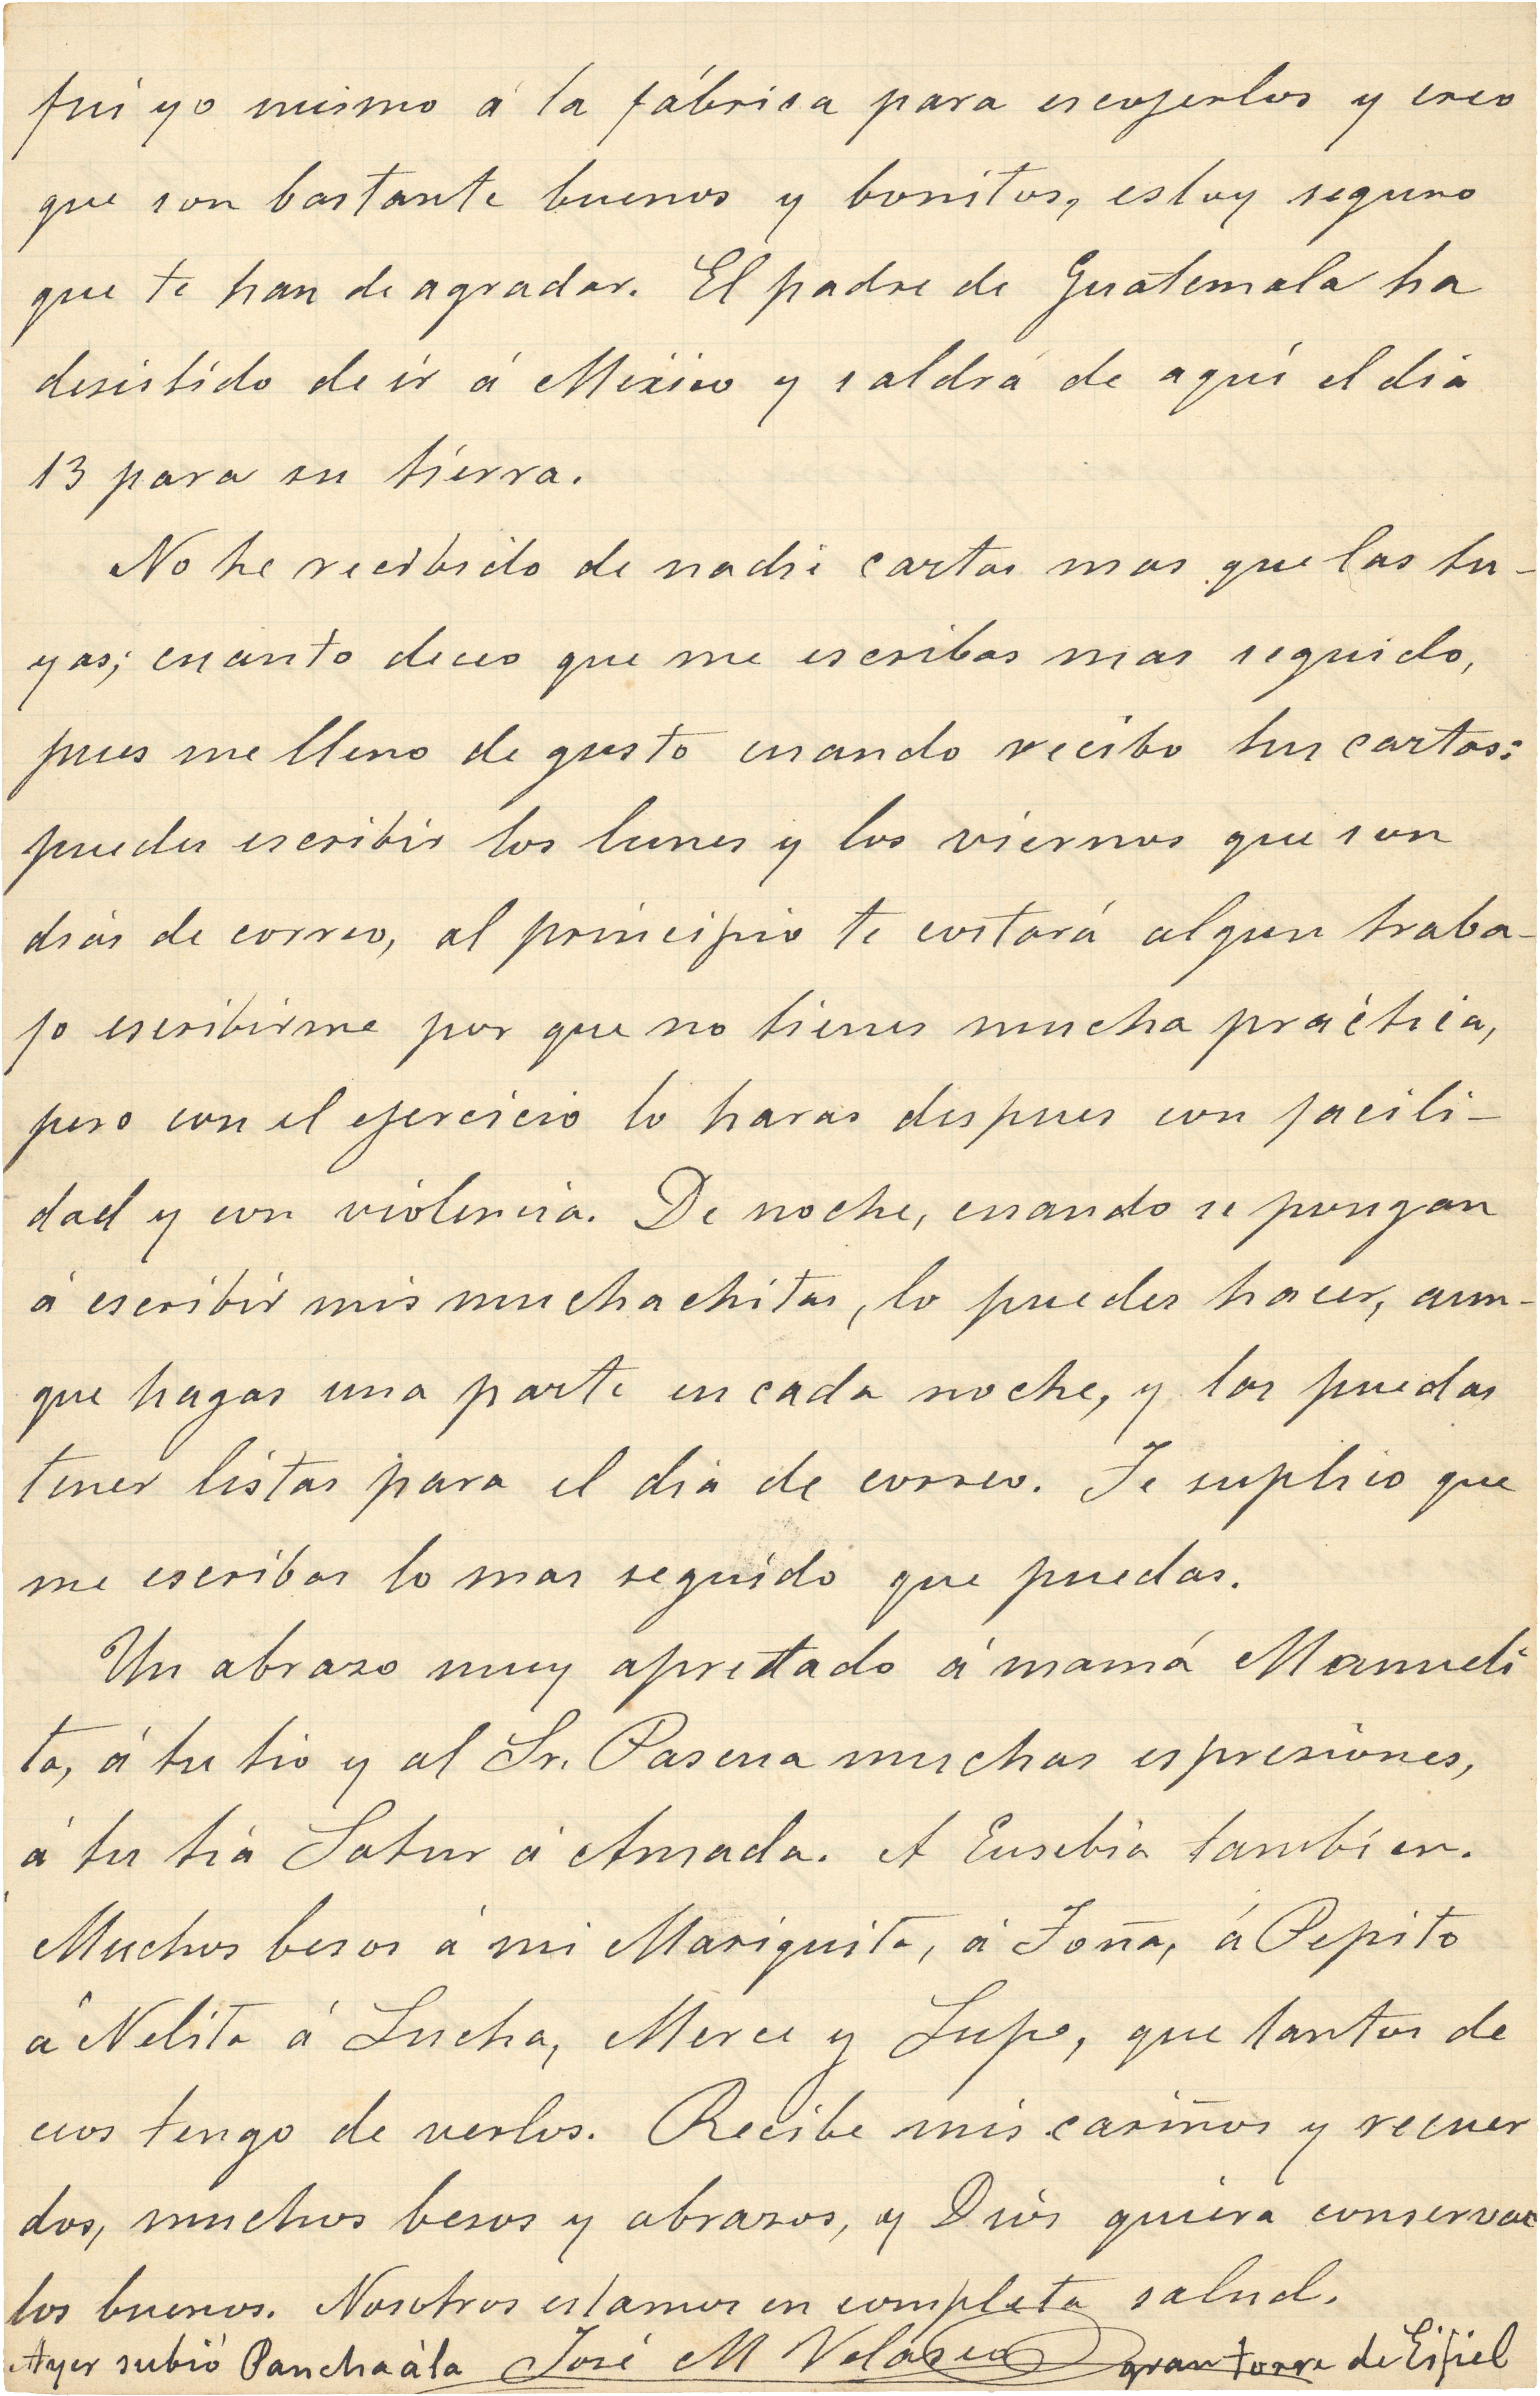 fui yo mismo á la fábrica para escojerlos y creo
que son bastante buenos y bonitos, estoy seguro
que te han de agradar. El padre de Guatemala ha
desistido de ir á México y saldrá de aquí el dia
13 para su tierra.
No he recibido de nadie cartas mas que las tu-
yas; cuanto deceo que me escribas mas seguido,
pues me lleno de gusto cuando recibo tus cartas:
puedes escribir los lunes y los viernes que son
dias de correo, al principio te costará algun traba-
jo escribirme por que no tienes mucha práctica,
pero con el ejercicio lo haras despues con facili-
dad y con violencia. De noche, cuando se pongan
á escribir mis muchachitas, lo puedes hacer, aun-
que hagas una parte en cada noche, y las puedas
tener listas para el dia de correo. Te suplico que
me escribas lo mas seguido que puedas.
Un abrazo muy apretado á mamá Manueli
ta, á tu tio y al Sr. Pasena muchas espresiones,
á tu tia Satur á Amada. A Eusebia tambien.
Muchos besos á mi Mariquita, á Toña, á Pepito
á Nelita á Lucha, Merce y Lupe, que tantos de
ceos tengo de verlos. Recibe mis cariños y recuer
dos, muchos besos y abrazos, y Dios quiera conservar
los buenos. Nosotros estamos en completa salud.
Ayer subió Pancha á la José M Velasco gran torre de Eifiel